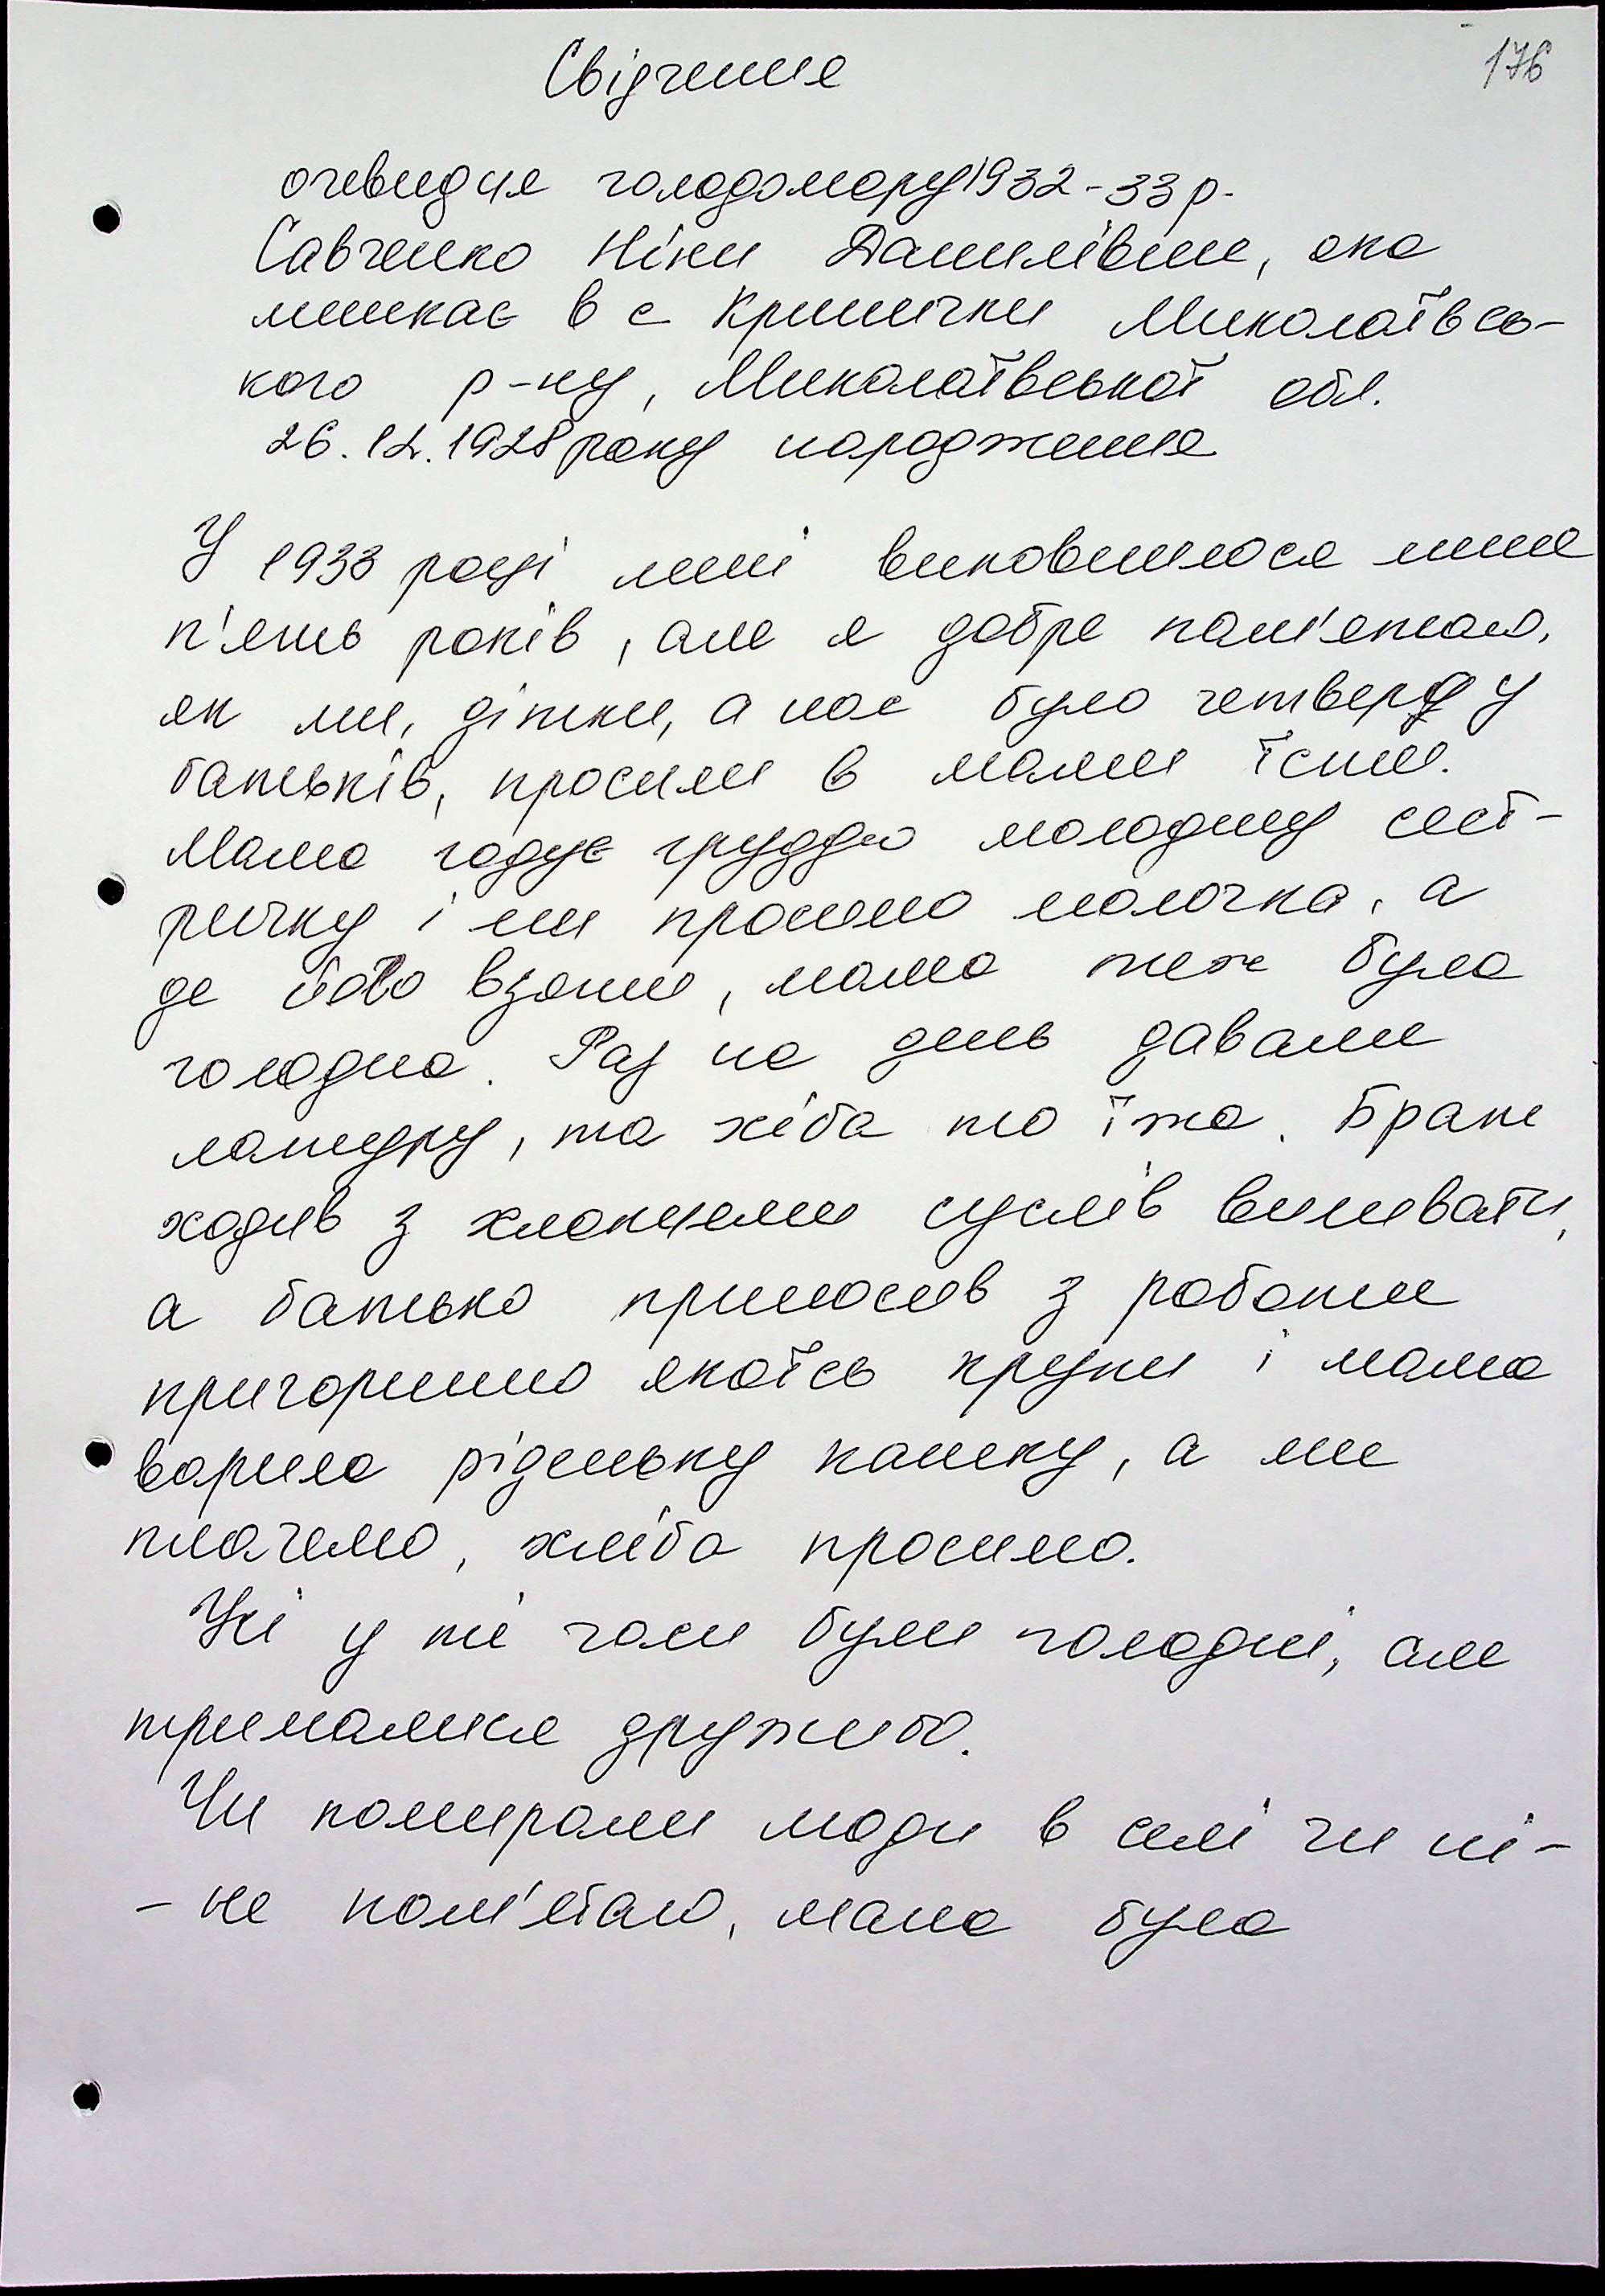 176
Свідчення
очевидця голодомору 1932-33 р.
Савченко Ніни Данилівни, яка
мешкає в с Кринички Миколаївсь-
кого р-ну, Миколаївської обл.
26.12.1928 року народження
У 1933 році мені виповнилося лише
п'ять років, але я добре пам'ятаю,
як ми, дітки, а нас було четверо у
батьків, просили в мами їсти.
Мама годує груддю молодшу сест-
ричку і ми просимо молочка, а
де його взяти, мама теж була
голодна. Раз на день давали
мамі, та хіба то їжа. Брат
ходив з хлопцями суслів виливати,
а батько приносив з роботи
пригоршню якоїсь крупи і мама
варила ріденьку кашку, а ми
плачемо, хліба просимо.
Усі у ті часи були голодні, але
трималися дружно.
Чи помирали люди в селі чи ні-
- не пам'ятаю, мала була